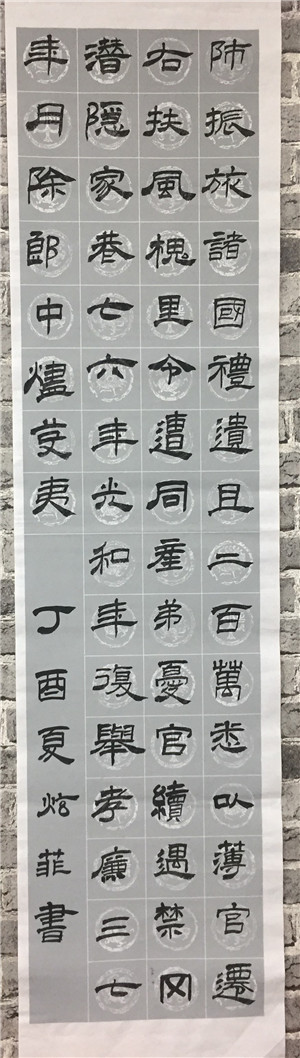 师振旅諸國禮遺且二百萬悉以薄官遷
右扶風槐里令遭同產弟憂官續遇禁冈
潛隱家巷七六年光和年復舉孝廉三七
年月除郎中燼芟夷
丁酉夏炫菲書